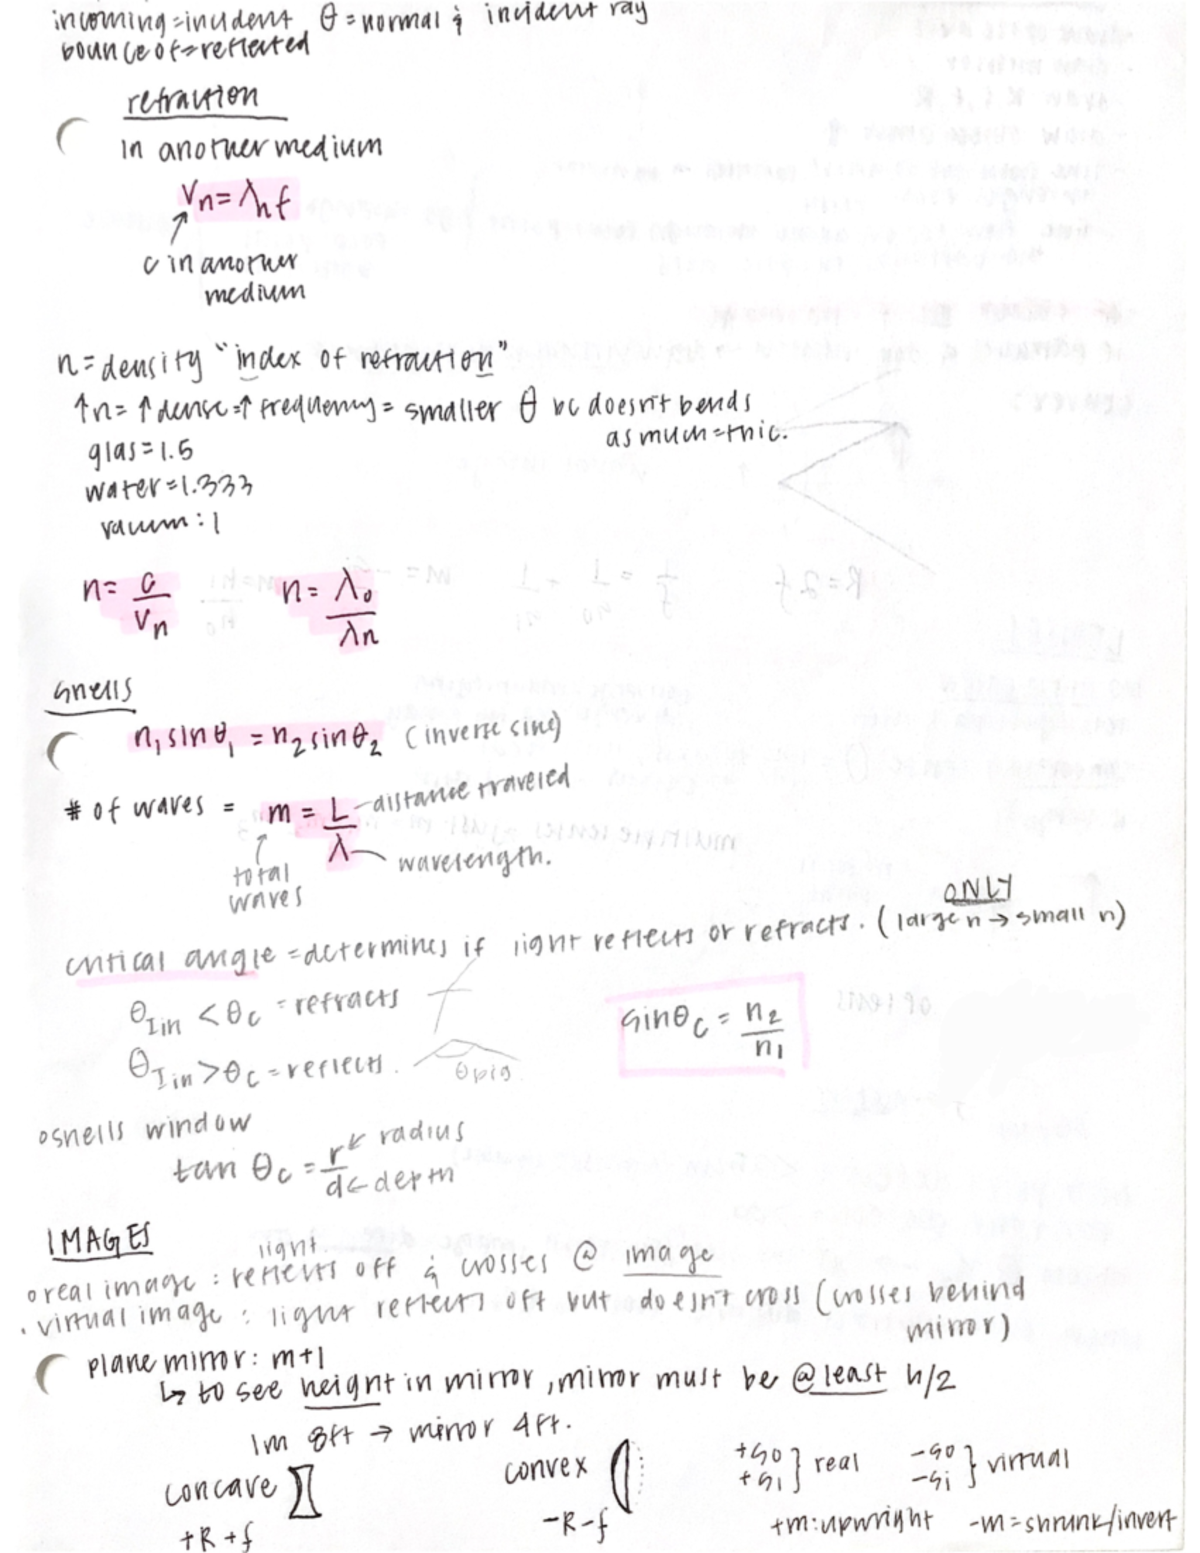 incoming=incident θ=normal & incident ray
bounce of=reflected
refraction
in another medium
Vn=λnf
c in another
medium
n=density "index of refraction"
↑n=↑dense=↑frequency= smaller θ bc doesn't bends
as much=thic.
glas=1.5
water=1.333
vacuum:1
n= c/Vn n= λo/λn
snells
n₁sinθ₁ = n₂sinθ₂ (inverse sine)
# of waves = m = L/λ distance traveled
wavelength.
total
waves
ONLY
critical angle=determines if light reflects or refracts. (large n→small n)
θIin <θc = refracts
sinθc = n₂/n₁
θIin >θc = reflects. θbig
osnells window
tan θc = r/d ← radius
←depth
IMAGES
light
oreal image: reflects off & crosses @ image
.virtual image: light reflects off but doesn't cross (crosses behind
mirror)
plane mirror: m+1
↳ to see height in mirror, mirror must be @least h/2
Im 8ft → mirror 4ft.
concave
+R +f
convex
-R-f
+so
+si } real
-so
-si } virtual
+m:upwright -m=shrunk/invert